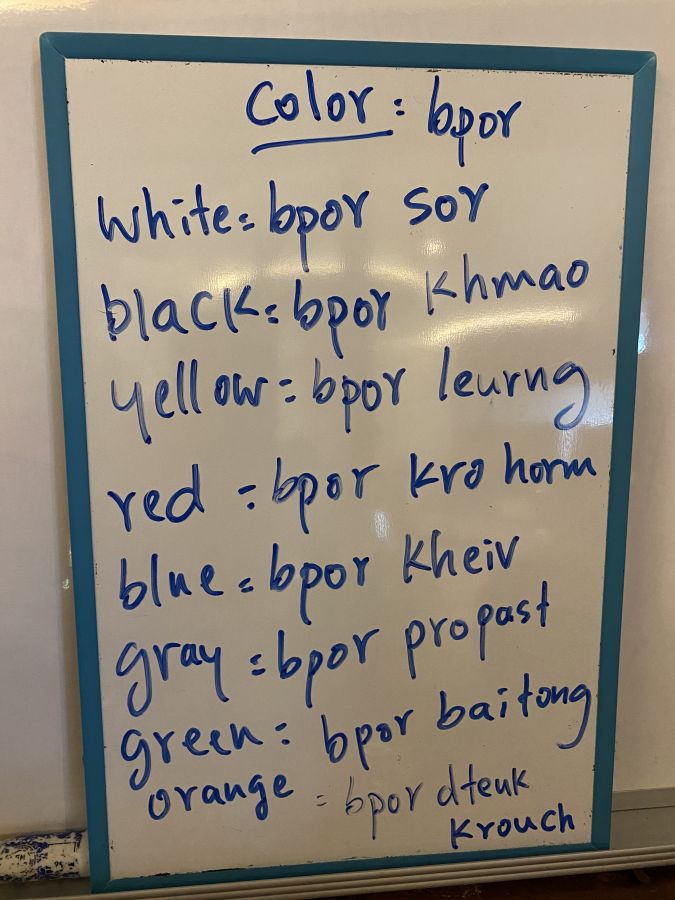 Color : bpor
White = bpor sor
black = bpor khmao
yellow = bpor leurng
red = bpor kro horm
blue = bpor kheiv
gray = bpor propast
green = bpor baitong
orange = bpor dteuk
krouch